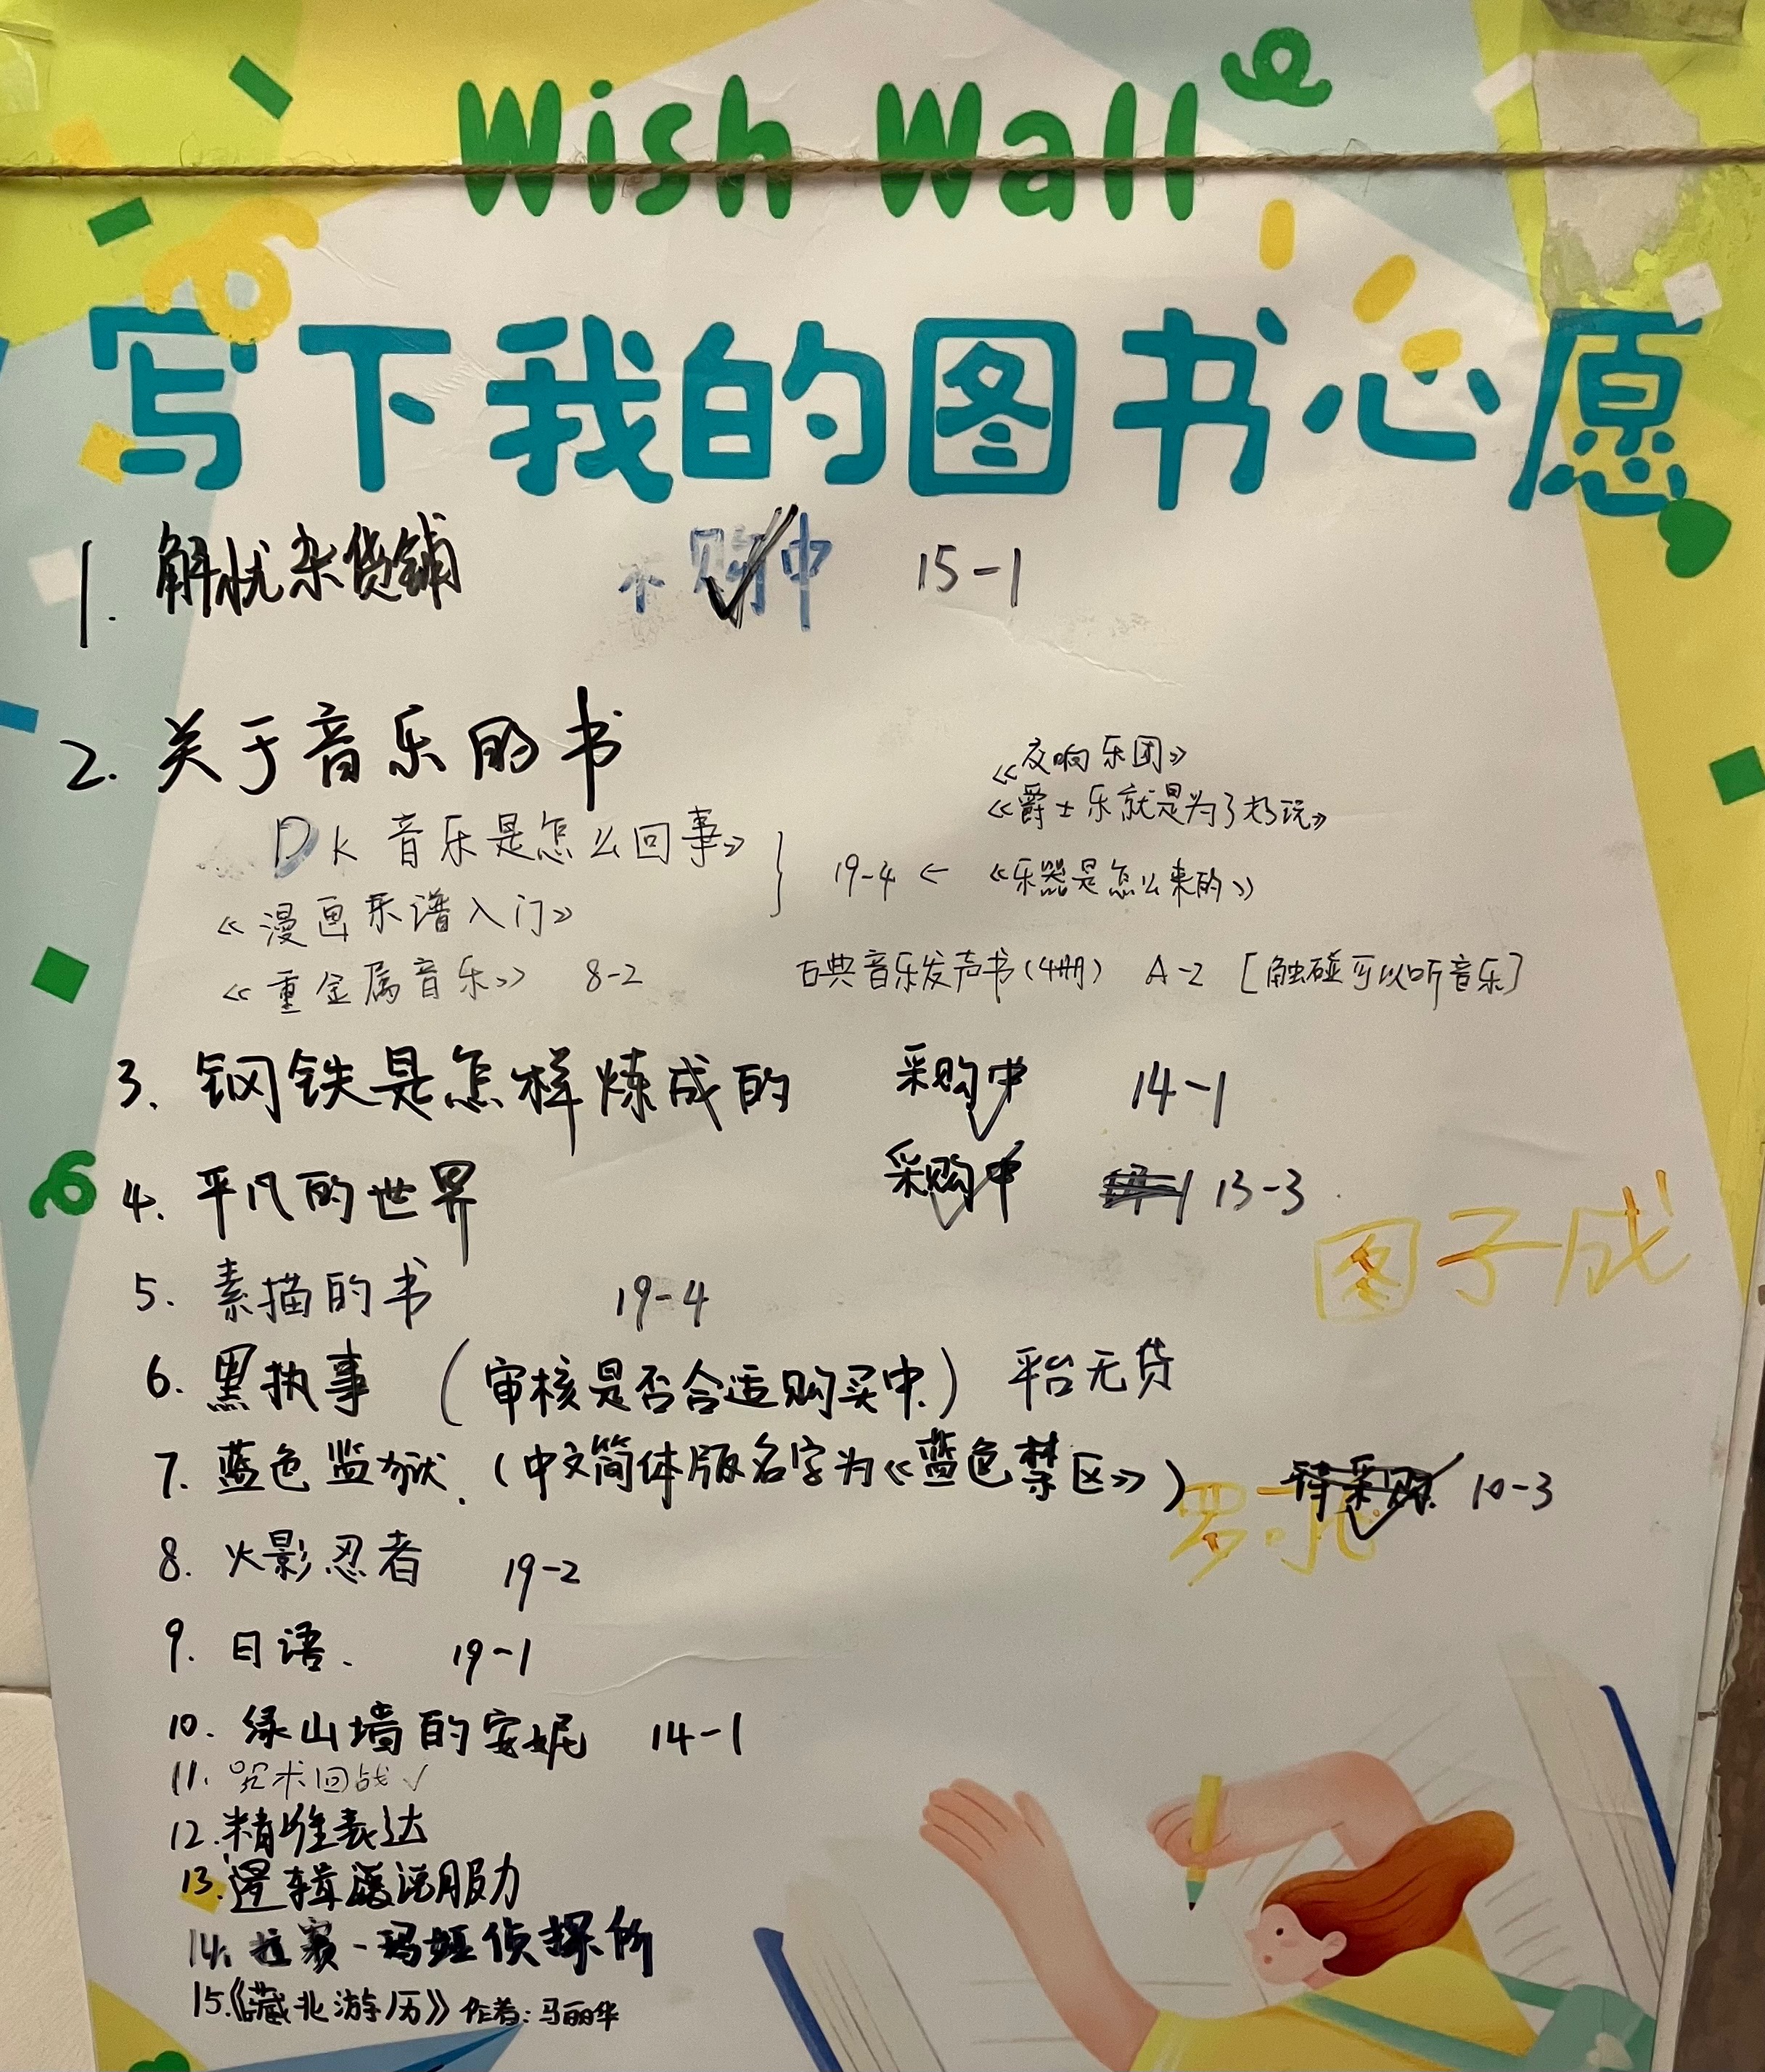 Wish Wall
写下我的图书心愿
1. 解忧杂货铺 购中 15-1
2. 关于音乐的书
《交响乐团》
《爵士乐就是为了好玩》
DK 音乐是怎么回事》
19-4 ← 《乐器是怎么来的》
《漫画乐谱入门》
《重金属音乐》 8-2 古典音乐发声书(4册) A-2 [触碰可以听音乐]
3. 钢铁是怎样炼成的 采购中 14-1
4. 平凡的世界 采购中 13-3
图子成
5. 素描的书 19-4
6. 黑执事 (审核是否合适购买中.) 平台无货
7. 蓝色监狱.(中文简体版名字为《蓝色禁区》) 待采购 10-3
8. 火影忍者 19-2
9. 日语. 19-1
10. 绿山墙的安妮 14-1
11. 咒术回战✓
12.精准表达
13.逻辑说服力
14. 拉赛-玛娅侦探所
15.《藏北游历》作者:马丽华